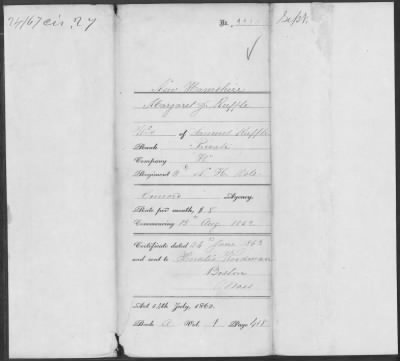 24/67 cir. 27
Sept.
No.
New Hampshire
Margaret J. Ruffle
Wid. of Samuel Ruffle
Rank Private
Company
Regiment N. H. Vols
Concord Agency.
Rate per month, $ 8
Commencing Aug. 1862
Certificate dated June 1863
and sent to Woodman
Boston
Mass
Act 14th July, 1862.
Book A Vol. 1 Page 418